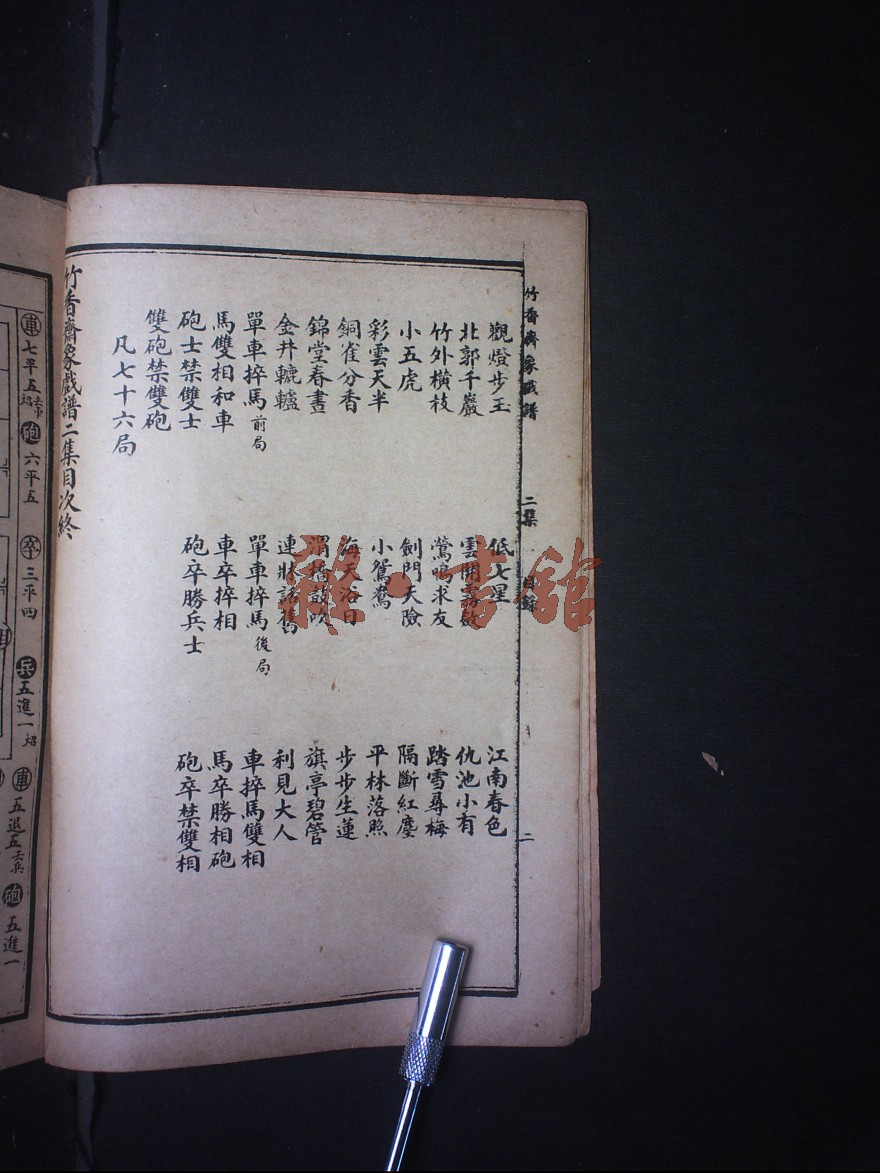 竹香齋象戲譜 二集 目錄 二
觀燈步玉 低七星 江南春色
北郭千巖 雲開霧斂 仇池小有
竹外橫枝 鶯鳴求友 踏雪尋梅
小五虎 劍門天險 隔斷紅塵
彩雲天半 小鴛鴦 平林落照
銅雀分香 海天浴日 步步生蓮
錦堂春晝 渭橋鼓吹 旗亭碧管
金井轆轤 連牀話舊 利見大人
單車捽馬前局 單車捽馬後局 車捽馬雙相
馬雙相和車 車卒捽相 馬卒勝相砲
砲士禁雙士 砲卒勝兵士 砲卒禁雙相
雙砲禁雙砲
凡七十六局
竹香齋象戲譜二集目次終
車七平五 砲六平五 卒三平四 兵五進一 車五退五 砲五進一
雜·書館